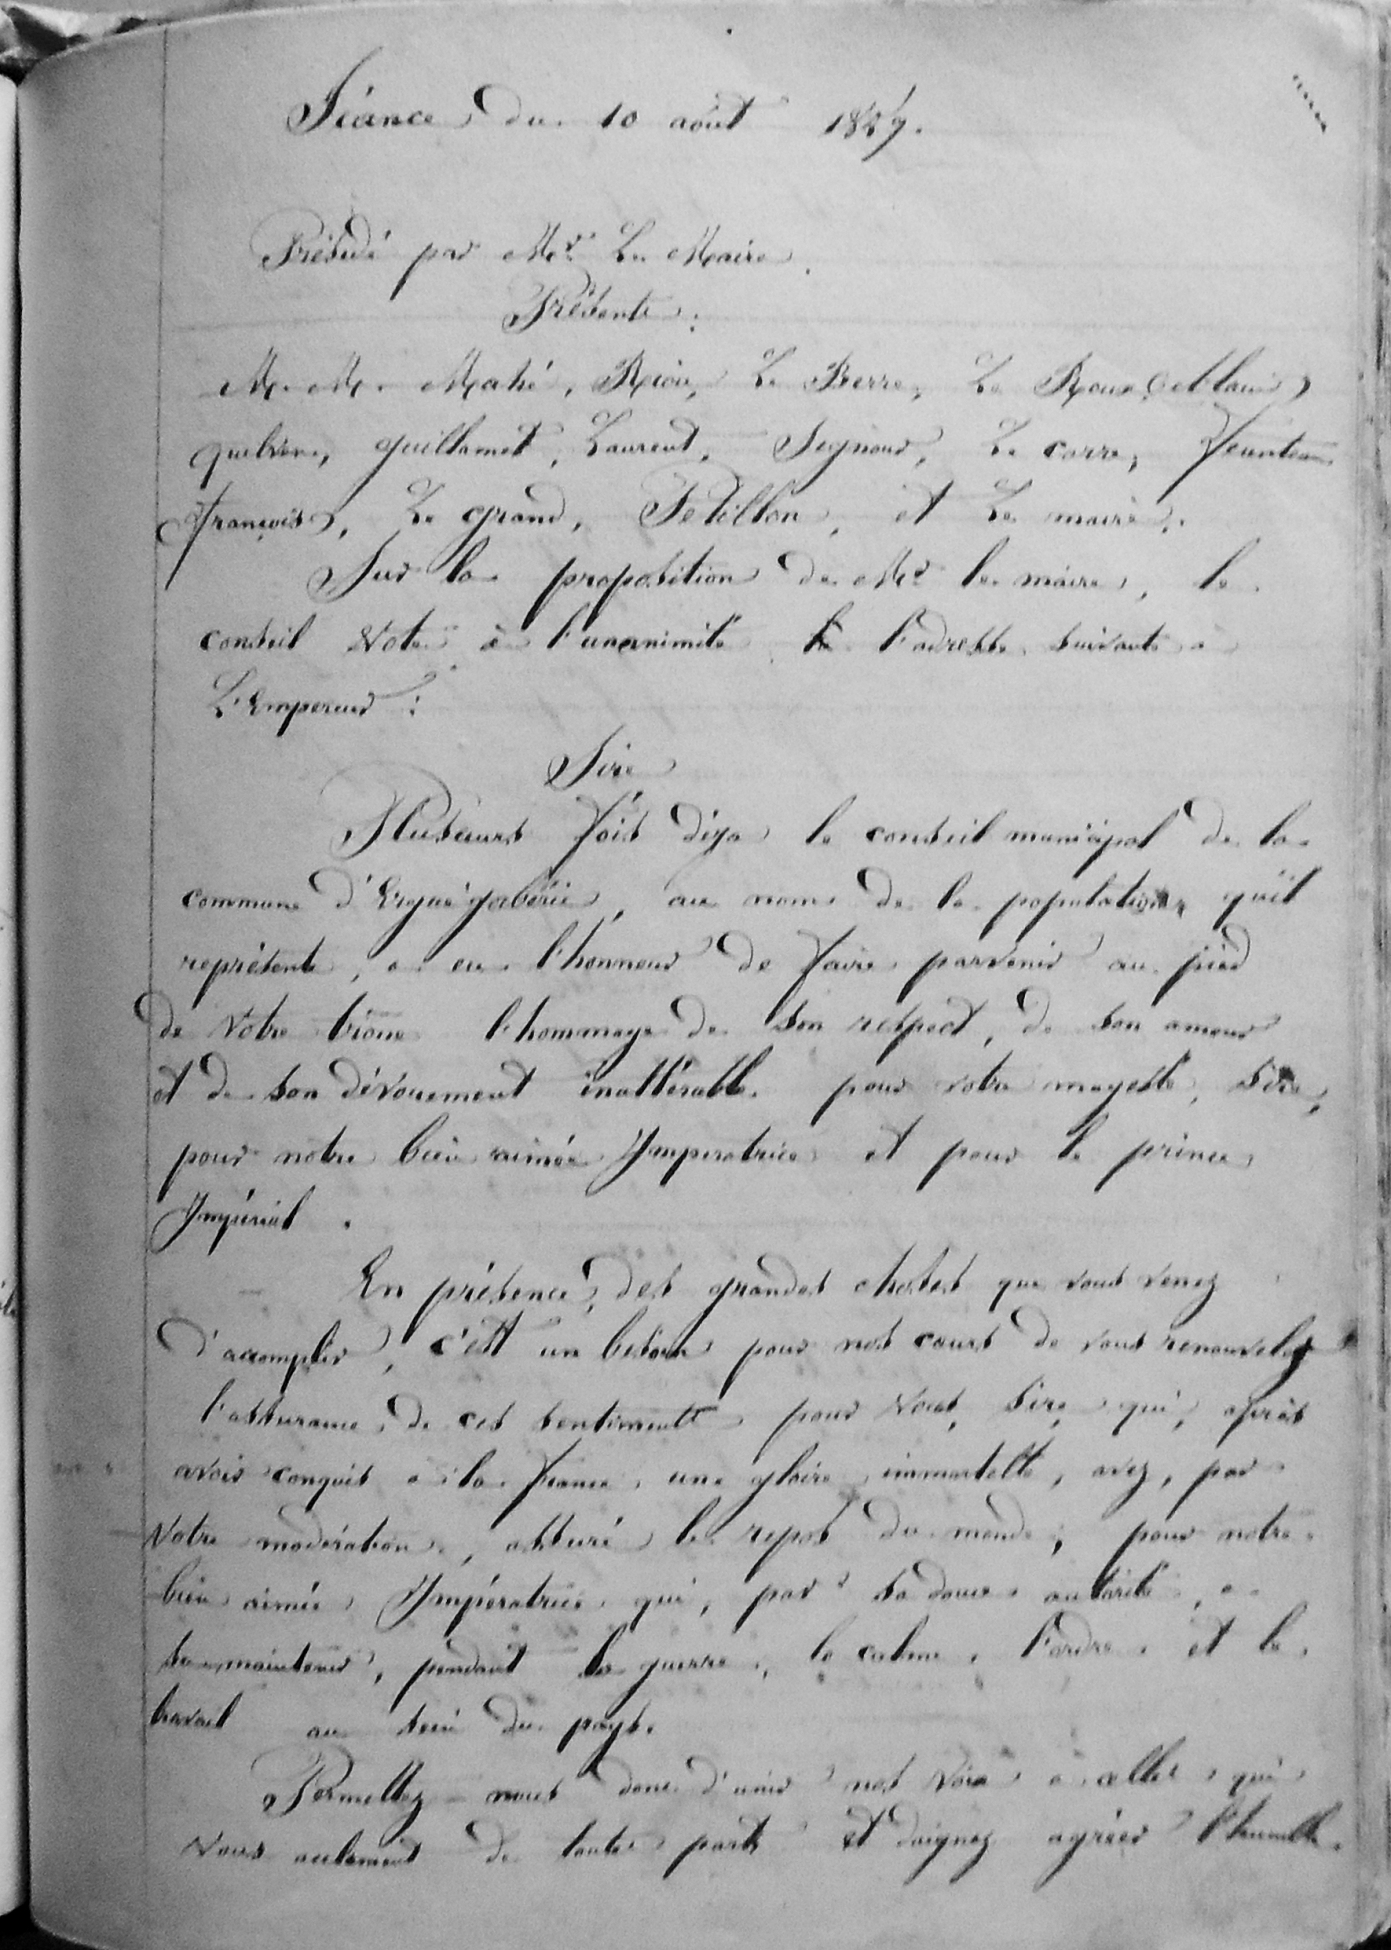 Séance du 10 août 1859.
Présidé par Mr. Le Maire.
Présents :
M. M. Mahé, Riou, Le Berre, Le Roux, 
quelven, guillamet, Laurent, Seznour, Le corre, 
françois, Le grand, Petillon, et Le maire.
Sur la proposition de Mr le maire, le
conseil vote à l'unanimité l'adresse suivante à
L'Empereur :
Sire
Plusieurs fois déja le conseil municipal de la
commune d'Ergué gabéric, au nom de la population qu'il
représente, a eu l'honneur de faire parvenir au pied
de votre trône l'hommage de son respect, de son amour
et de son dévouement inaltérable pour votre majesté, sire,
pour notre bien aimée Impératrice et pour le prince
Impérial.
En présence des grandes choses que vous venez
d'accomplir, c'est un besoin pour nos cœurs de vous renouveler
l'assurance de ces sentiments pour vous, sire, qui, après
avoir conquis à la france une gloire immortelle, avez, par
votre modération, assuré le repos du monde; pour notre
bien aimée Impératrice qui, par sa douce autorité, a
su maintenir, pendant la guerre, le calme, l'ordre et le
travail au sein du pays.
Permettez-nous donc d'unir nos voix à celles qui
vous acclament de toutes parts et daignez agréer l'humble